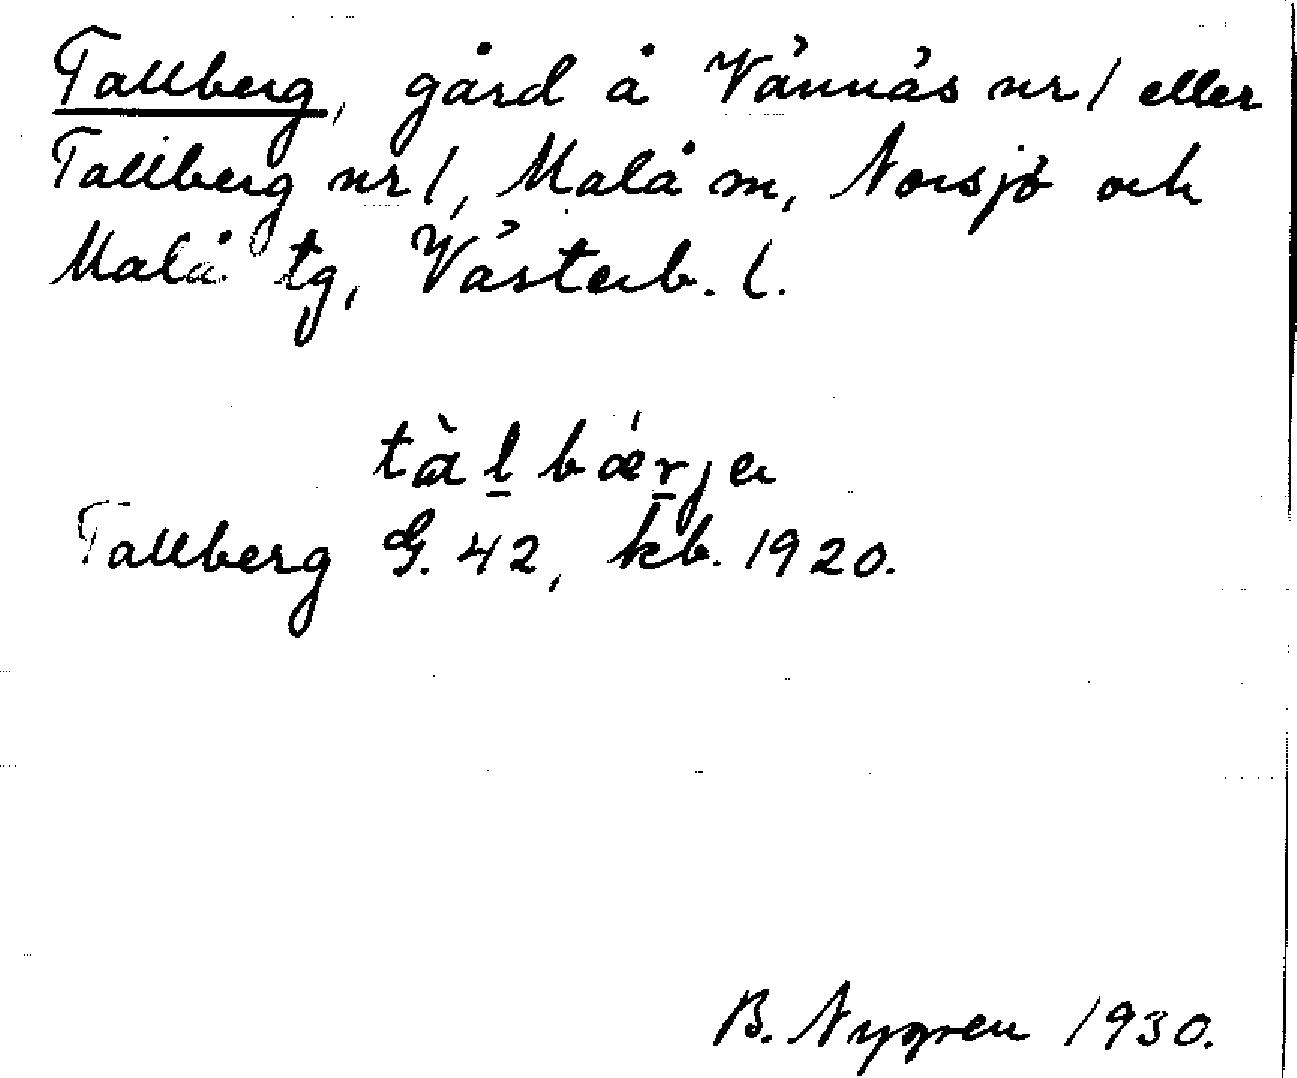 Tallberg, gård å Vännäs nr 1 eller
Tallberg nr 1, Malå sn, Norsjö och
Malå tg, Västerb. l.
tàl̲bǽr̲jer
Tallberg G. 42, kb. 1920.
B. Nygren 1930.